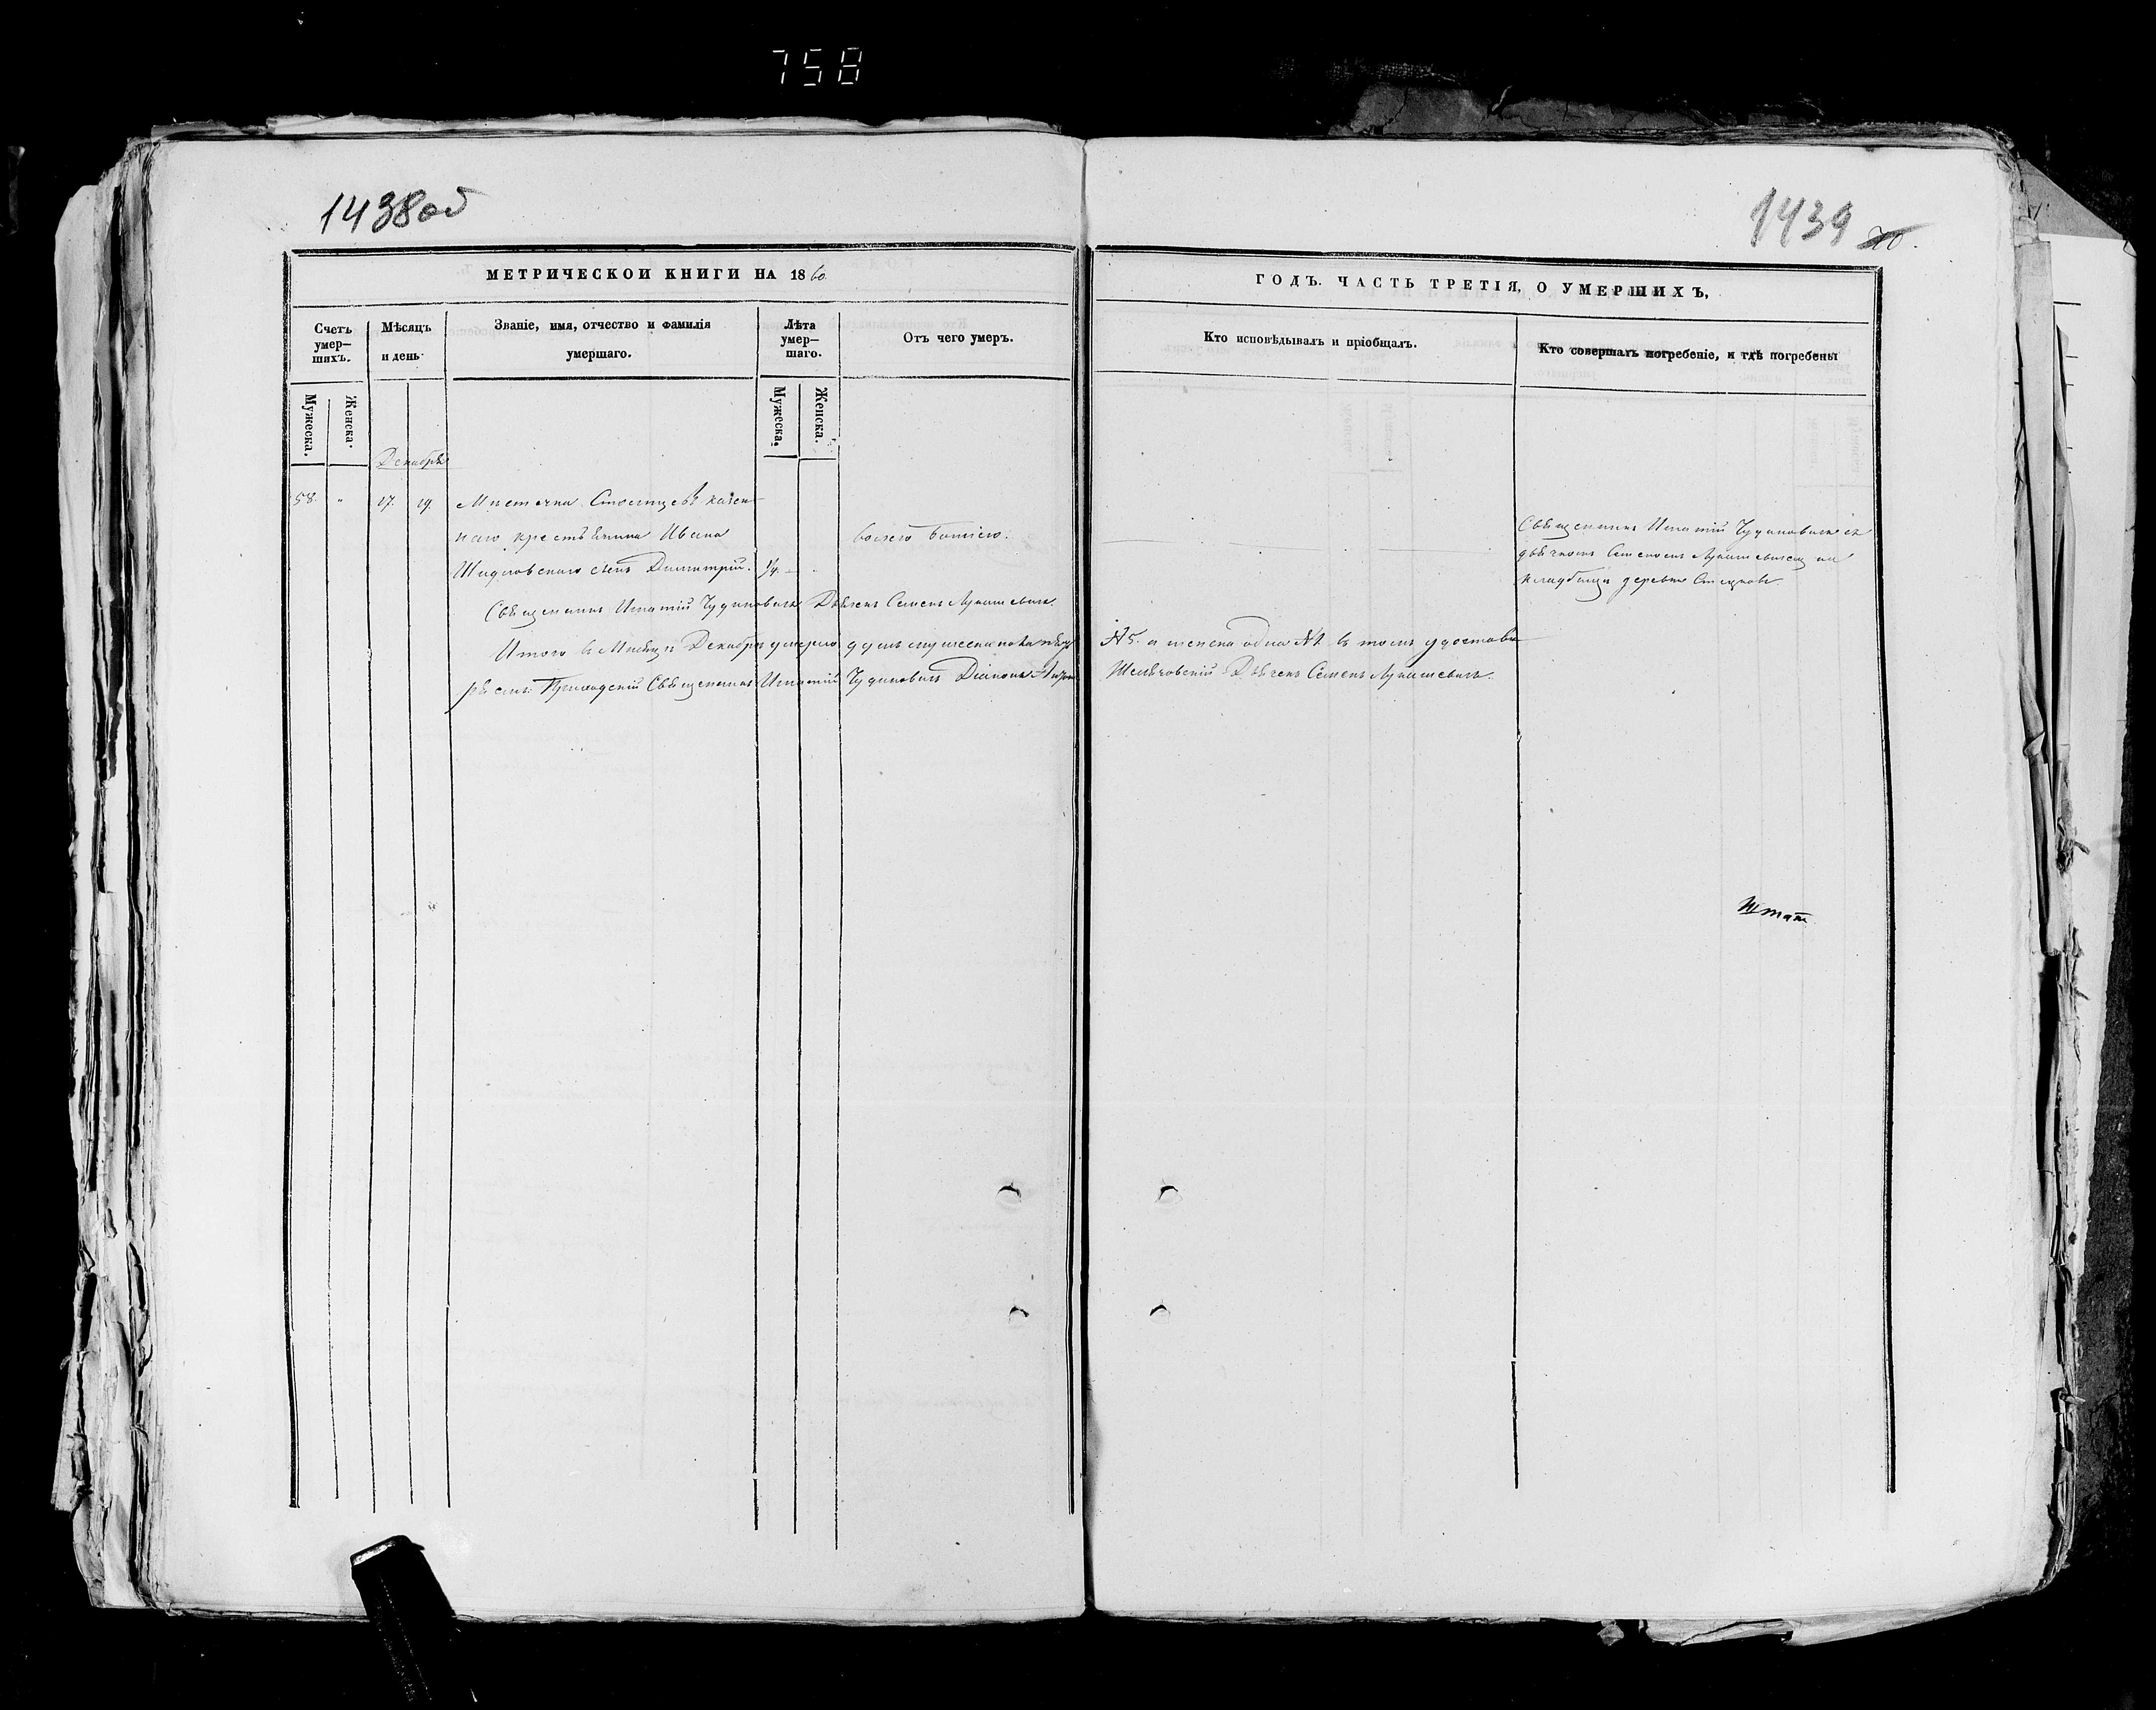 758
1438об
1439 70.
МЕТРИЧЕСКОИ КНИГИ НА 1860
ГОДЪ. ЧАСТЬ ТРЕТІЯ, О УМЕРШИХЪ,
Счетъ умер–шихъ.
Мѣсяцъ и день.
Званіе, имя, отчество и фамилія умершаго.
Лѣта умер–шаго.
Отъ чего умеръ.
Кто исповѣдывалъ и пріобщалъ.
Кто совершалъ погребеніе, и гдѣ погребены
Мужеска.
Женска.
Мужеска.
Женска.
Декабрь
58. " 17. 19. Мѣстечка казен
наго крестьянина Ивана
Шидловскаго сынъ Димитрій. 1/4.
Священникъ Игнатій Чудиновичъ съ
дьячкомъ Семеномъ Лукашевичемъ на
кладбищи деревни
Священникъ Игнатій Чудиновичъ Дьячекъ Семенъ Лукашевичъ.
Итого въ Мѣсяцѣ Декабрѣ умерло душъ мужеска пола
№ 5. а женска одна №1. въ томъ удостовѣ
ряемъ: Приходскій Священникъ Игнатій Чудиновичъ Діаконъ
Дьячекъ Семенъ Лукашевичъ.